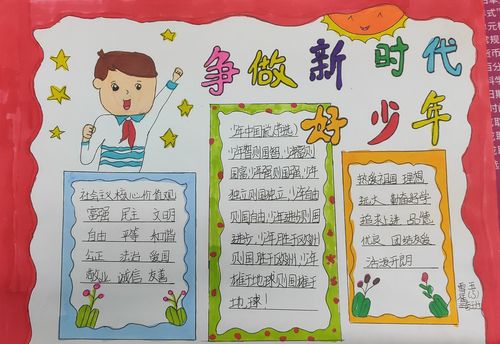 争做新时代
好少年
社会主义核心价值观
富强 民主 文明
自由 平等 和谐
公正 法治 爱国
敬业 诚信 友善
少年中国说(节选)
少年智则国智,少年富则
国富,少年强则国强,少年
独立则国独立,少年自由
则国自由,少年进步则国
进步,少年胜于欧洲,
则国胜于欧洲,少年
雄于地球则国雄于
地球!
热爱祖国 理想
远大 勤奋好学
追求上进 品德
优良 团结友爱
活泼开朗